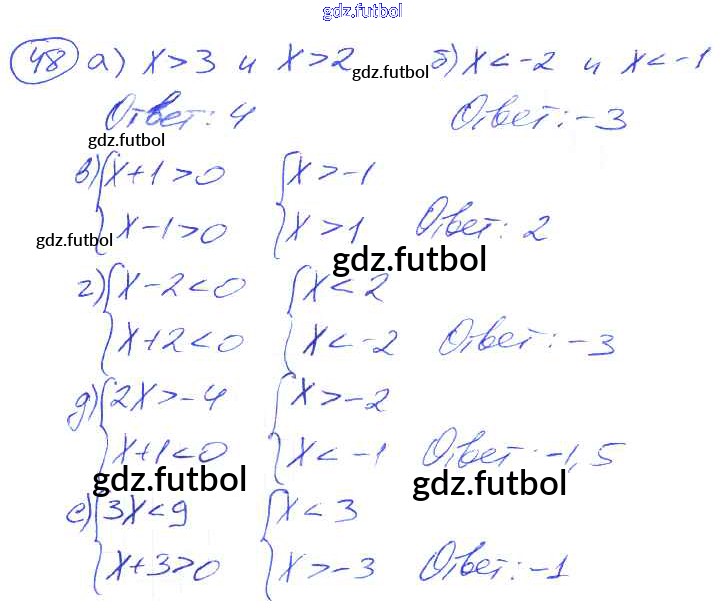 gdz.futbol
48 а) x>3 и x>2 gdz.futbol б) x<-2 и x<-1
Ответ: 4 Ответ: -3
gdz.futbol
в) {x+1>0 {x>-1
gdz.futbol x-1>0 x>1 Ответ: 2
gdz.futbol
г) {x-2<0 {x<2
x+2<0 x<-2 Ответ: -3
д) {2x>-4 {x>-2
x+1<0 x<-1 Ответ: -1,5
gdz.futbol gdz.futbol
е) {3x<9 {x<3
x+3>0 x>-3 Ответ: -1